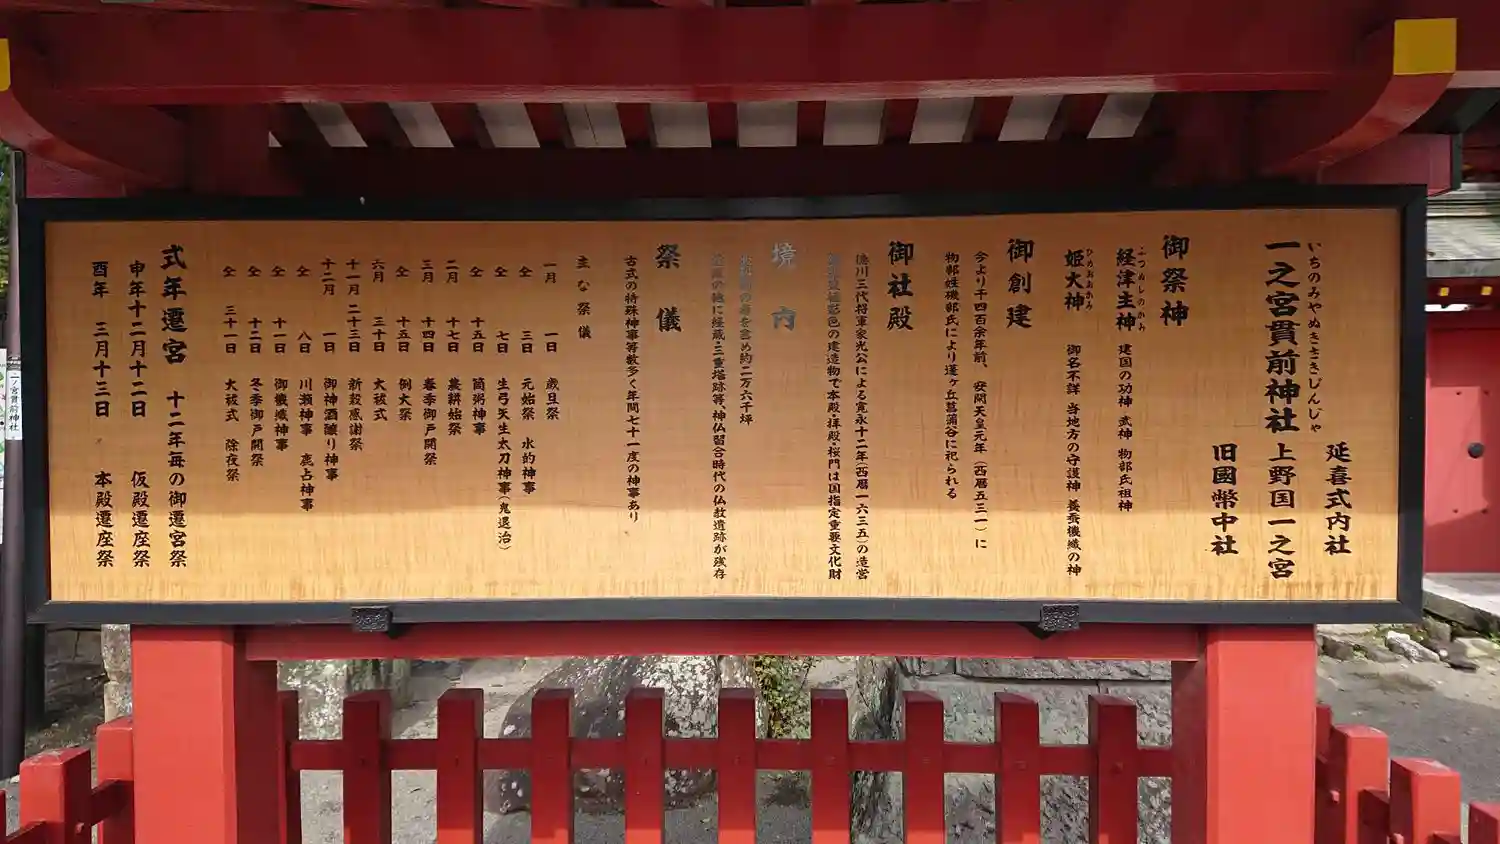 延喜式内社
いちのみやぬきさきじんじゃ
一之宮貫前神社
上野国一之宮
旧國幣中社
御祭神
ふつぬしのかみ
経津主神 建国の功神 武神 物部氏・祖神
ひめおおかみ
姫大神 御名不詳 当地方の守護神 養蚕機織の神
御創建
今より千四百余年前、安閑天皇元年(西暦五三一)に
物部姓磯部氏により蓬ヶ丘菖蒲谷に祀られる
御社殿
徳川三代将軍家光公による寛永十二年(西暦一六三五)の造営
極彩色の建造物で本殿・拝殿・桜門は国指定重要文化財
境内
の森を含め約二万六千坪
の他に経蔵・三重塔跡等、神仏習合時代の仏教遺跡が残存
祭儀
古式の特殊神事等数多く年間七十一度の神事あり
主な祭儀
一月 一日 歳旦祭
仝 三日 元始祭 水的神事
仝 七日 生弓矢生太刀神事(鬼退治)
仝 十五日 筒粥神事
二月 十七日 農耕始祭
三月 十四日 春季御戸開祭
仝 十五日 例大祭
六月 三十日 大祓式
十一月 二十三日 新穀感謝祭
十二月 一日 御神酒醸り神事
仝 八日 川瀬神事 鹿占神事
仝 十一日 御機織神事
仝 十二日 冬季御戸開祭
仝 三十一日 大祓式 除夜祭
式年遷宮 十二年毎の御遷宮祭
申年十二月十二日 仮殿遷座祭
酉年 三月十三日 本殿遷座祭
一ノ宮貫前神社